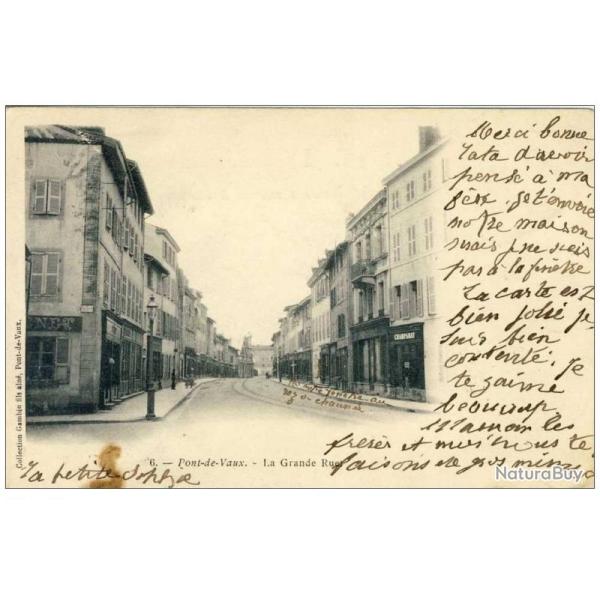 Merci bonne
Tata d'avoir
pensé à ma
fête. je t'envoie
notre maison
mais je ne suis
pas à la fenêtre
La carte est
bien jolie je
suis bien
contente. Je
te j'aime
beaucoup
Maman les
frères et moi nous te
faisons de gros mimis
la fenêtre au
rez-de-chaussée
CHARPENAY
6. — Pont-de-Vaux. - La Grande Rue
Ta petite Sophie
Collection Gambée fils aîné, Pont-de-Vaux.
NaturaBuy